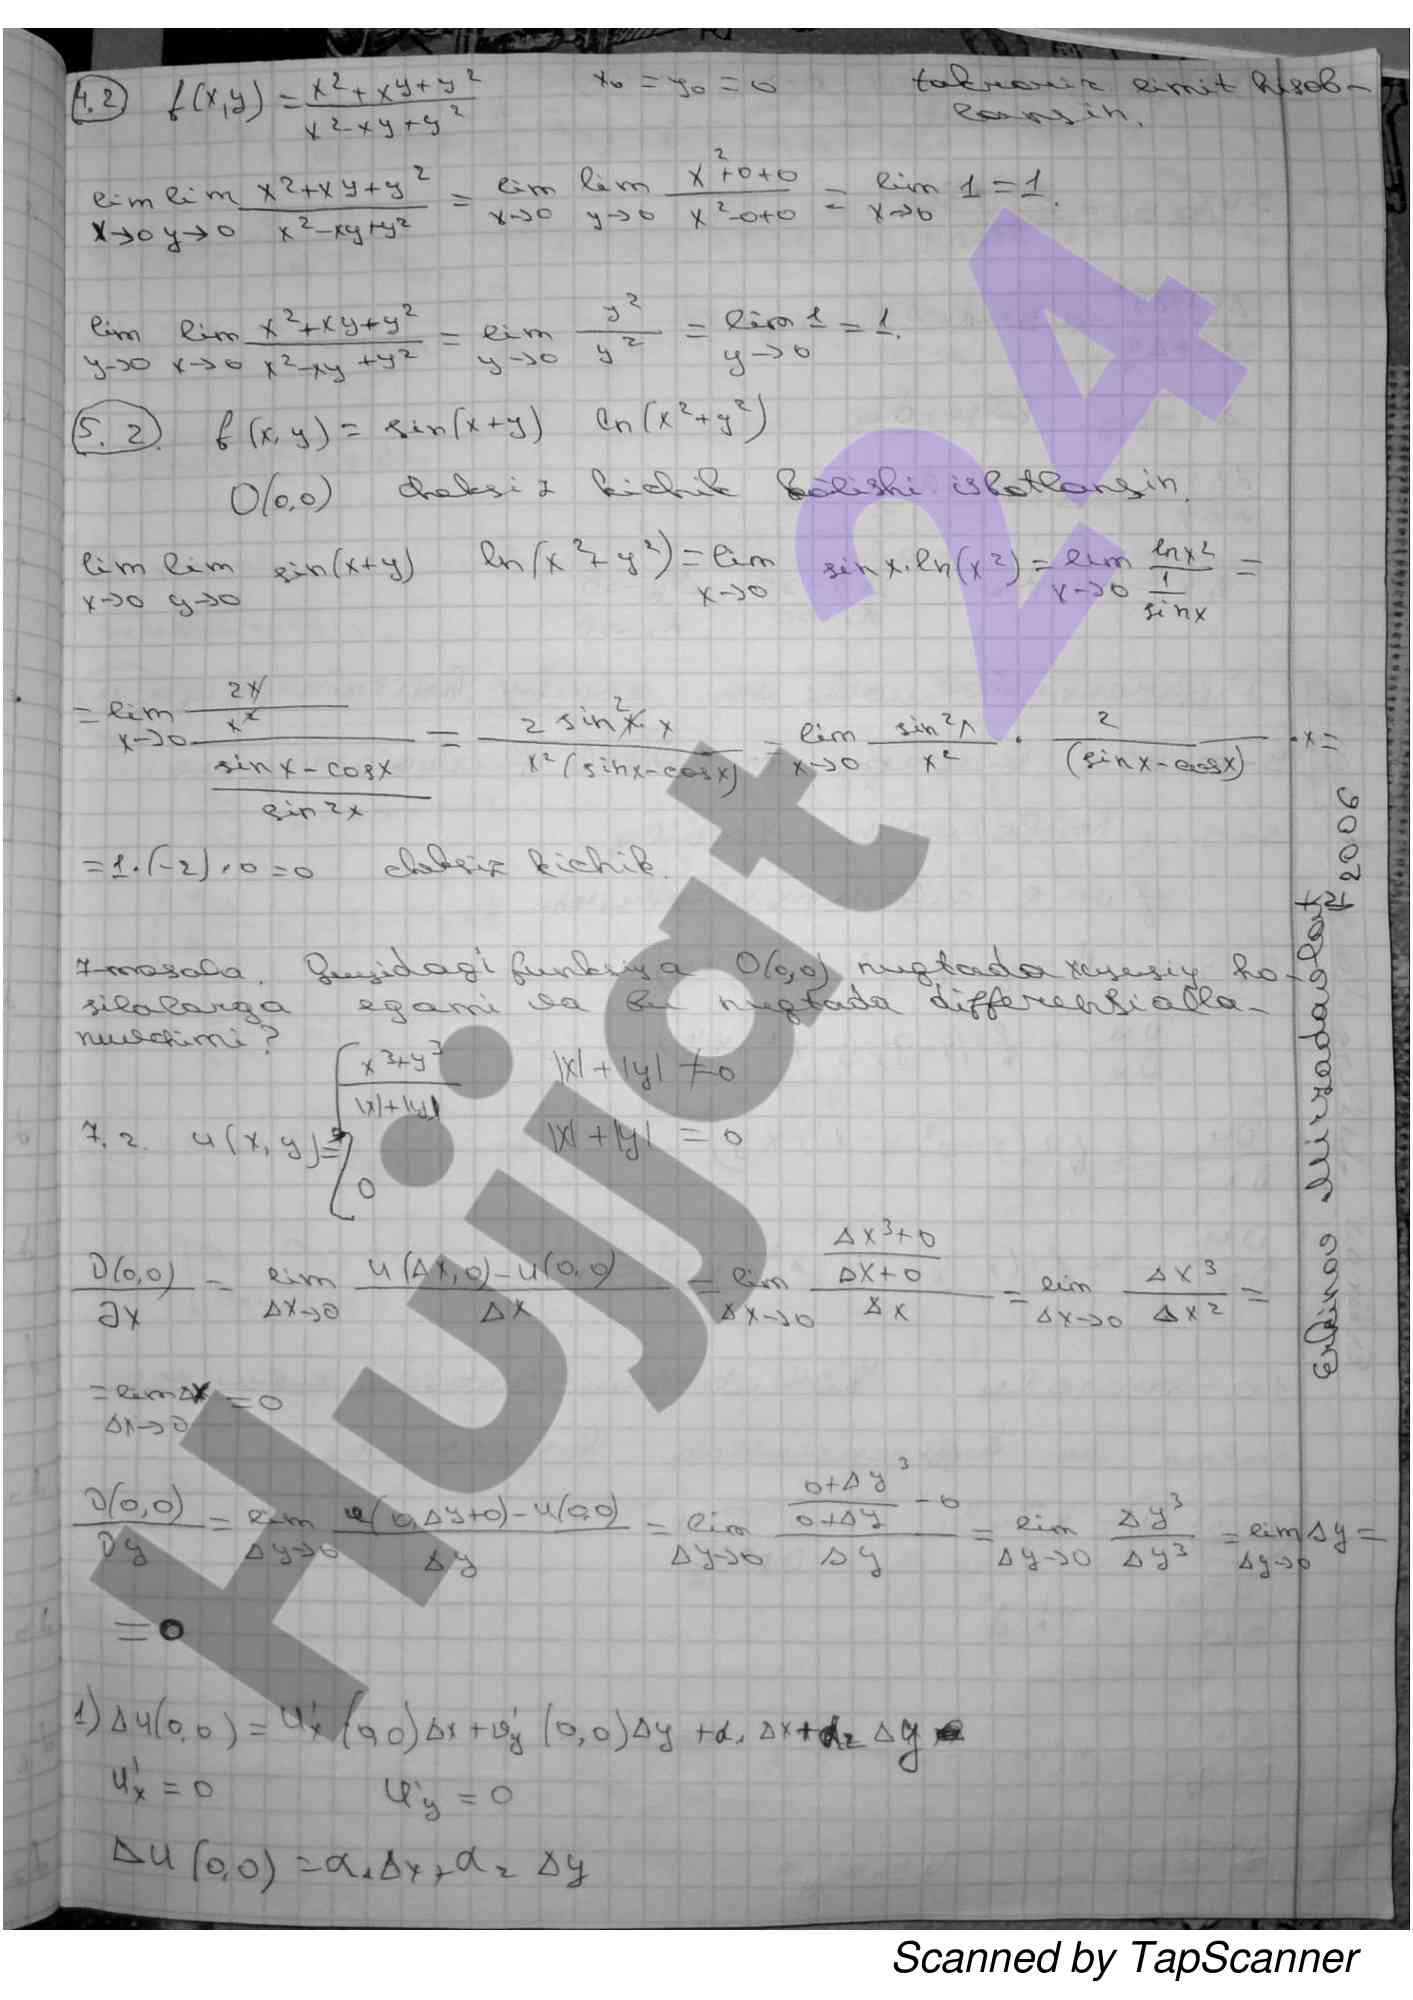 4.2 f(x,y) = (x²+xy+y²)/(x²-xy+y²) x₀ = y₀ = 0 takroriy limit hisob-
lansin.
lim x→0 lim y→0 (x²+xy+y²)/(x²-xy+y²) = lim x→0 lim y→0 (x²+0+0)/(x²-0+0) = lim x→0 1 = 1.
lim y→0 lim x→0 (x²+xy+y²)/(x²-xy+y²) = lim y→0 y²/y² = lim y→0 1 = 1.
5.2 f(x,y) = sin(x+y) ln(x²+y²)
O(0,0) cheksiz kichik bólishi isbotlansin.
lim x→0 lim y→0 sin(x+y) ln(x²+y²) = lim x→0 sinx·ln(x²) = lim x→0 lnx²/(1/sinx) =
= lim x→0 (2x/x²)/((sinx-cosx)/sin2x) = 2sin²x·x/(x²(sinx-cosx)) = lim x→0 sin²x/x² · 2/(sinx-cosx) ·x=
= 1·(-2)·0 = 0 cheksiz kichik.
7-masala. Quyidagi funksiya O(0,0) nuqtada xususiy ho-
silalarga egami va bu nuqtada differensialla-
nuvchimi?
7.2. u(x,y) = { (x³+y³)/(|x|+|y|) |x|+|y| ≠ 0
0 |x|+|y| = 0
∂(0,0)/∂x = lim Δx→0 (u(Δx,0)-u(0,0))/Δx = lim Δx→0 ((Δx³+0)/(Δx+0))/Δx = lim Δx→0 Δx³/Δx² =
= lim Δx→0 Δx = 0
∂(0,0)/∂y = lim Δy→0 (u(0,Δy+0)-u(0,0))/Δy = lim Δy→0 ((0+Δy³)/(0+Δy) - 0)/Δy = lim Δy→0 Δy³/Δy³ = lim Δy→0 Δy =
= 0
1) Δu(0,0) = u'x (0,0)Δx + u'y (0,0)Δy + α₁Δx + α₂Δy
u'x = 0 u'y = 0
Δu(0,0) = α₁Δx + α₂Δy
Erkinov Mirzadavlat
2006
Hujjat 24
Scanned by TapScanner